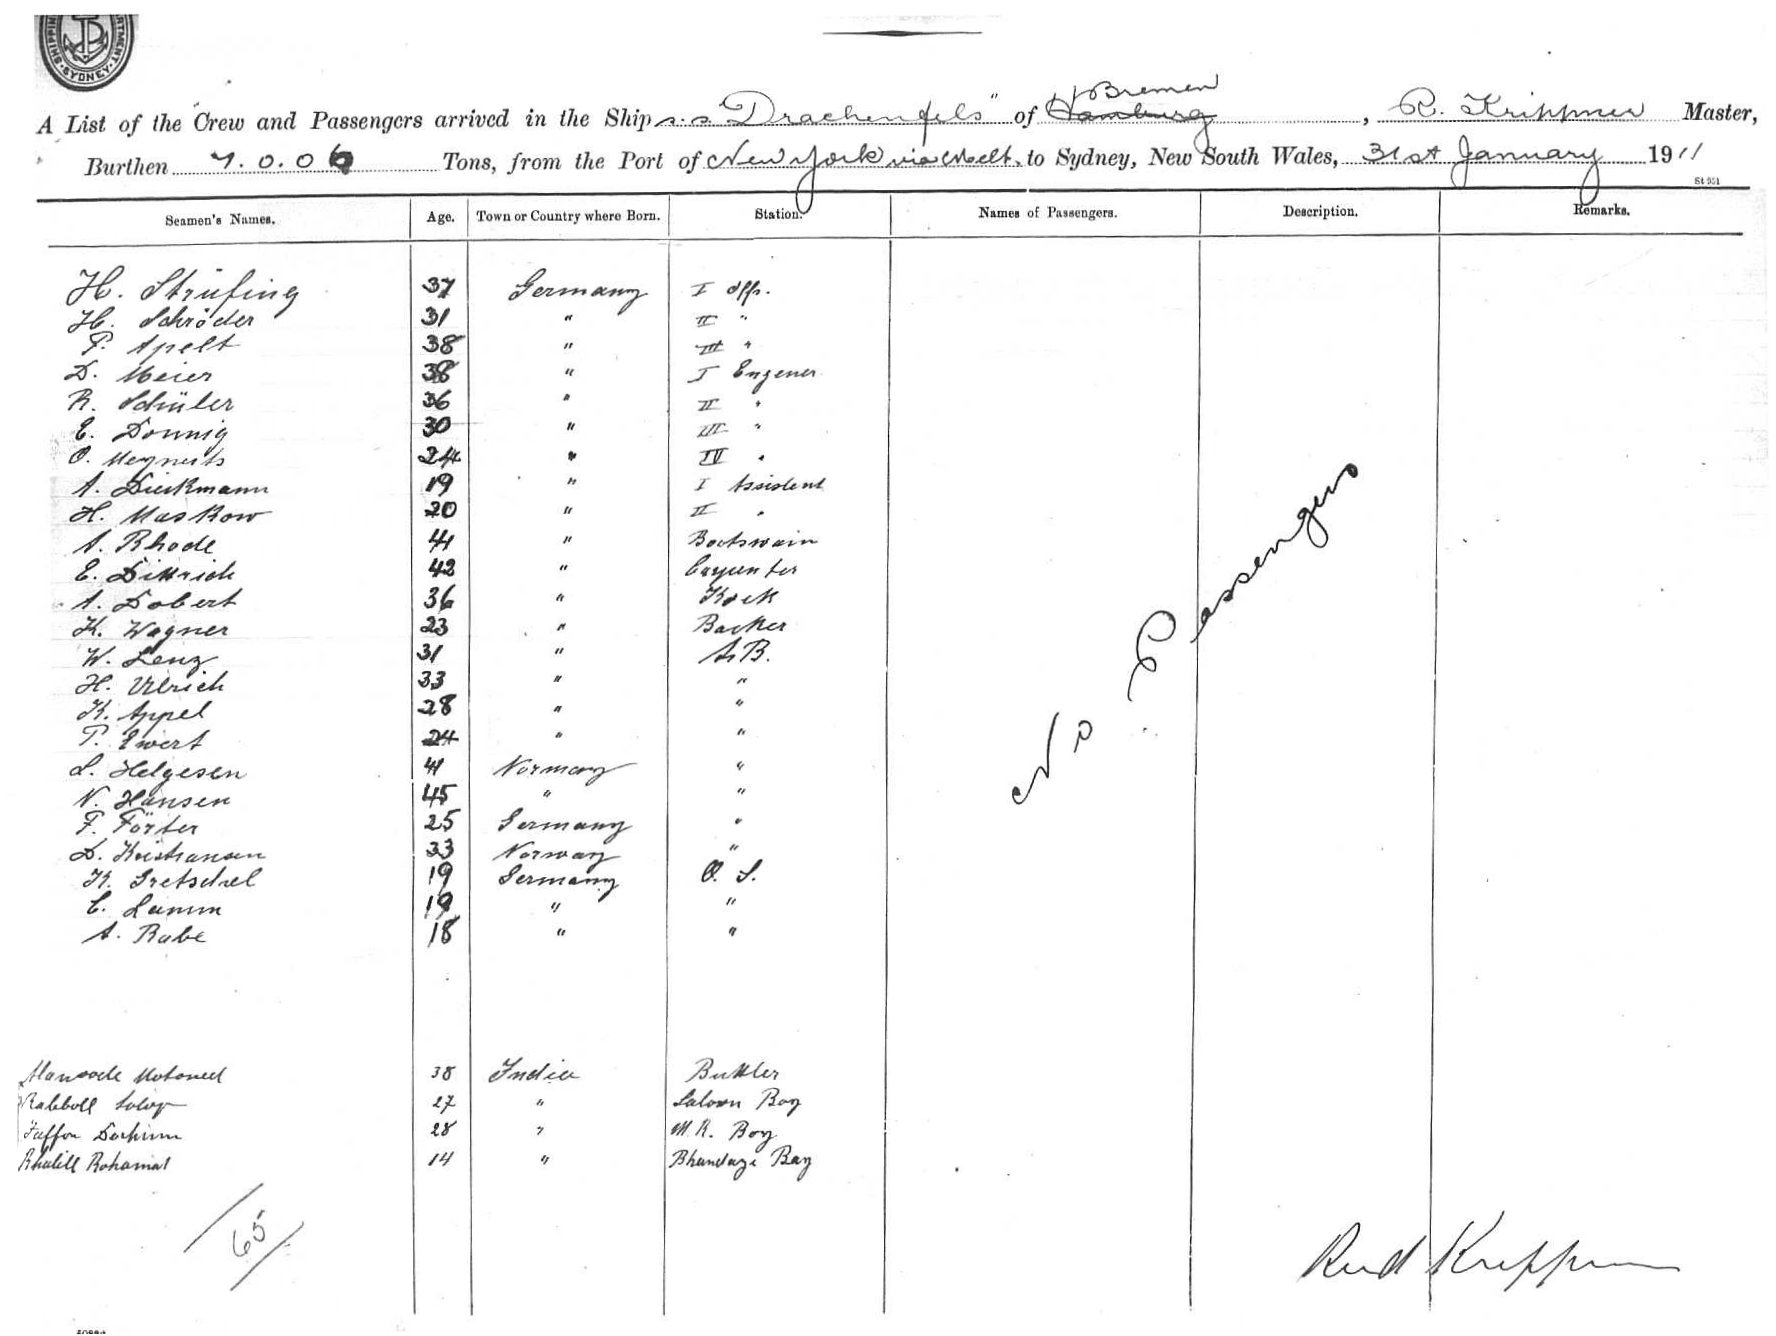 SHIPPIN RTMENT
SYDNEY
A List of the Crew and Passengers arrived in the Ship s.s "Drachenfels" of Hamburg Bremen, R. Krippner Master,
Burthen Tons, from the Port of New York via Melb. to Sydney, New South Wales, 31st January 1911
St 951
Seamen's Names. Age. Town or Country where Born. Station. Names of Passengers. Description. Remarks.
H. Strüfing 37 Germany I Offr.
H. Schröder 31 " II "
P. Apelt 38 " III "
D. Meier 38 " I Engener
R. Schüler 36 " II "
E. Donnig 30 " III "
O. Meynerts 24 " IV "
A. Dieckmann 19 " I Assistent
H. Maskow 20 " II "
A. Rhode 41 " Bootswain
E. Dittrich 42 " Carpenter
A. Dobert 36 " Kock
K. Wagner 23 " Backer
W. Lenz 31 " A.B.
H. Ulrich 33 " "
K. Appel 28 " "
P. Ewert 24 " "
L. Helgesen 41 Norway "
N. Hansen 45 " "
F. Förter 25 Germany "
D. Kristiansen 33 Norway "
K. Gretschel 19 Germany O. S.
C. Lamm 19 " "
A. Rabe 18 " "
No Passengers
38 India Buttler
27 " Saloon Boy
28 " M.R. Boy
Khalill Rohamat 14 " Boy
65
Rud Krippner